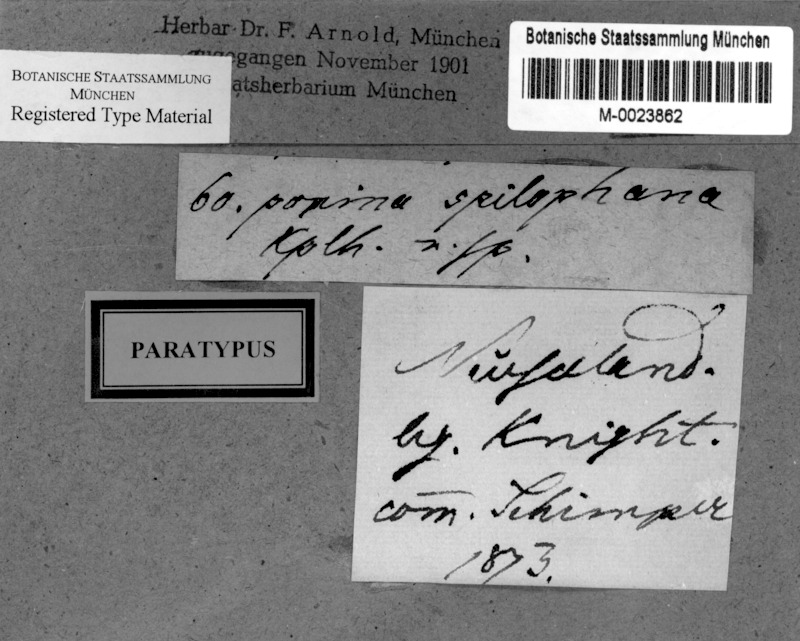 Herbar Dr. F. Arnold, München
zugegangen November 1901
atsherbarium München
Botanische Staatssammlung München
M-0023862
BOTANISCHE STAATSSAMMLUNG
MÜNCHEN
Registered Type Material
60. porina spilophana
Kplh. n. sp.
PARATYPUS
Neuseeland.
lg. Knight.
com̄. Schimper
1873.